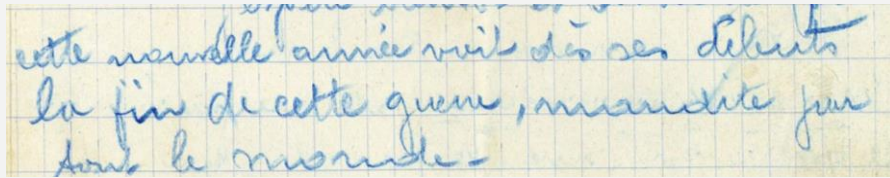 espère
cette nouvelle année voit dès ses débuts
la fin de cette guerre, maudite par
tout le monde-